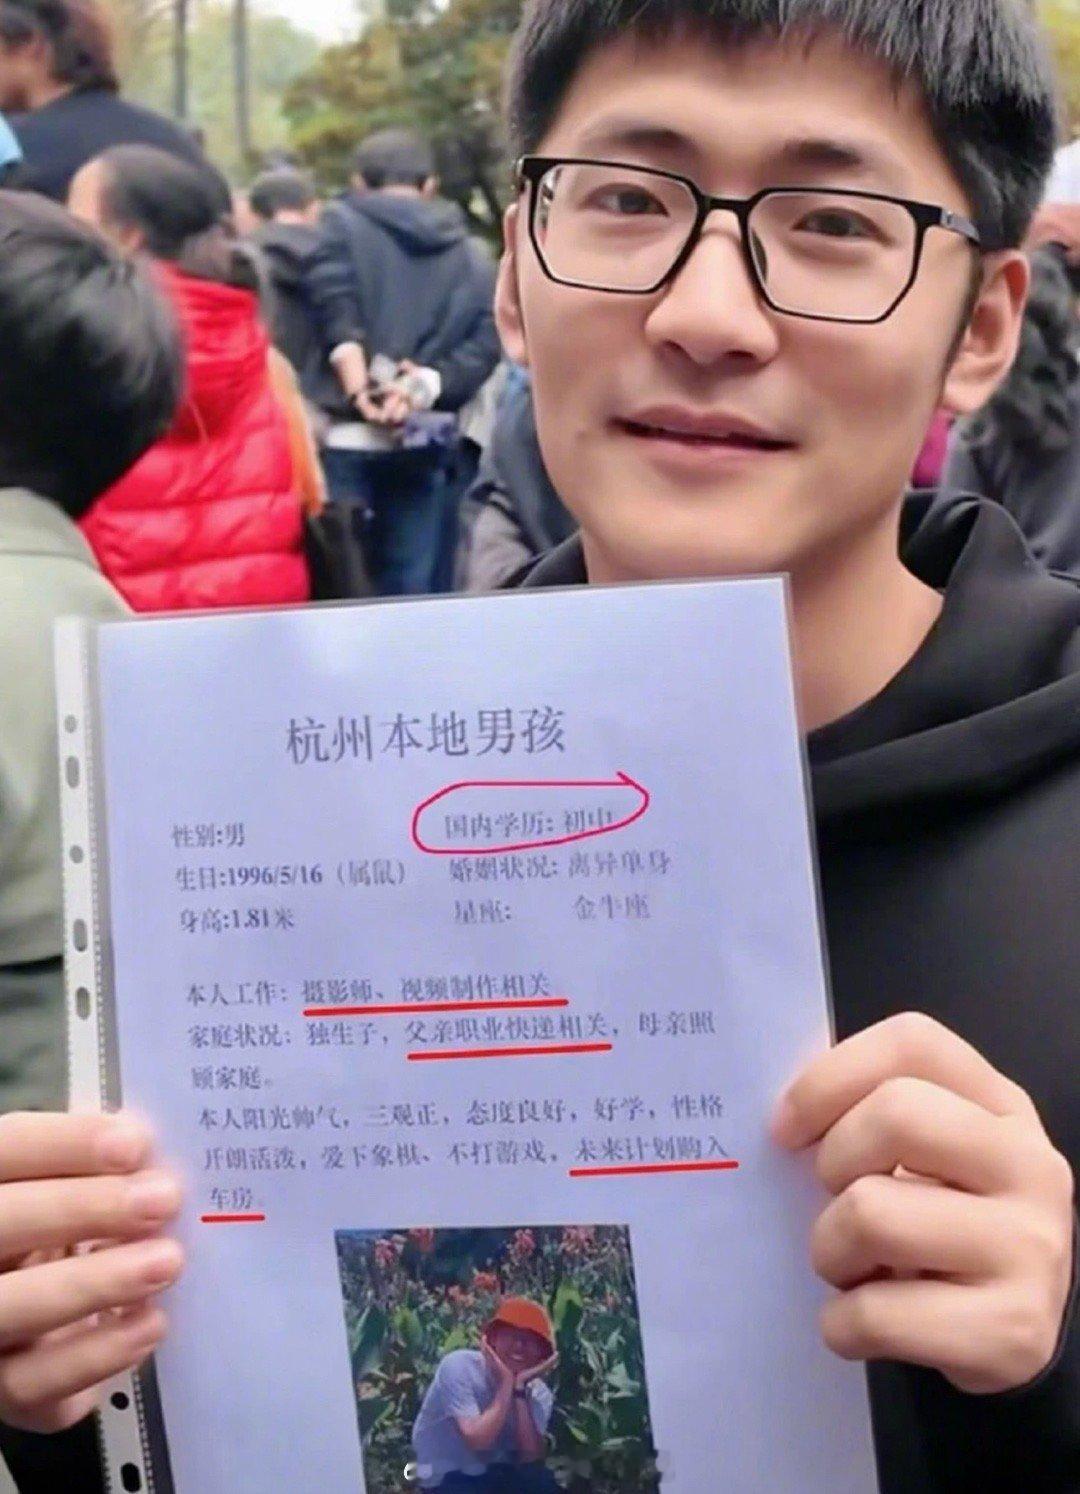 杭州本地男孩
性别:男 国内学历: 初中
生日:1996/5/16（属鼠） 婚姻状况: 离异单身
身高:1.81米 星座: 金牛座
本人工作：摄影师、视频制作相关
家庭状况：独生子，父亲职业快递相关，母亲照
顾家庭。
本人阳光帅气，三观正，态度良好，好学，性格
开朗活泼，爱下象棋、不打游戏，未来计划购入
车房。